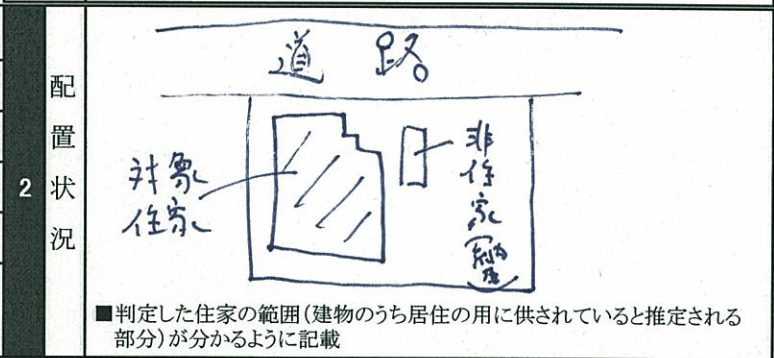 2
配置状況
道路
対象
住家
非住家(納屋)
■判定した住家の範囲(建物のうち居住の用に供されていると推定される
部分)が分かるように記載